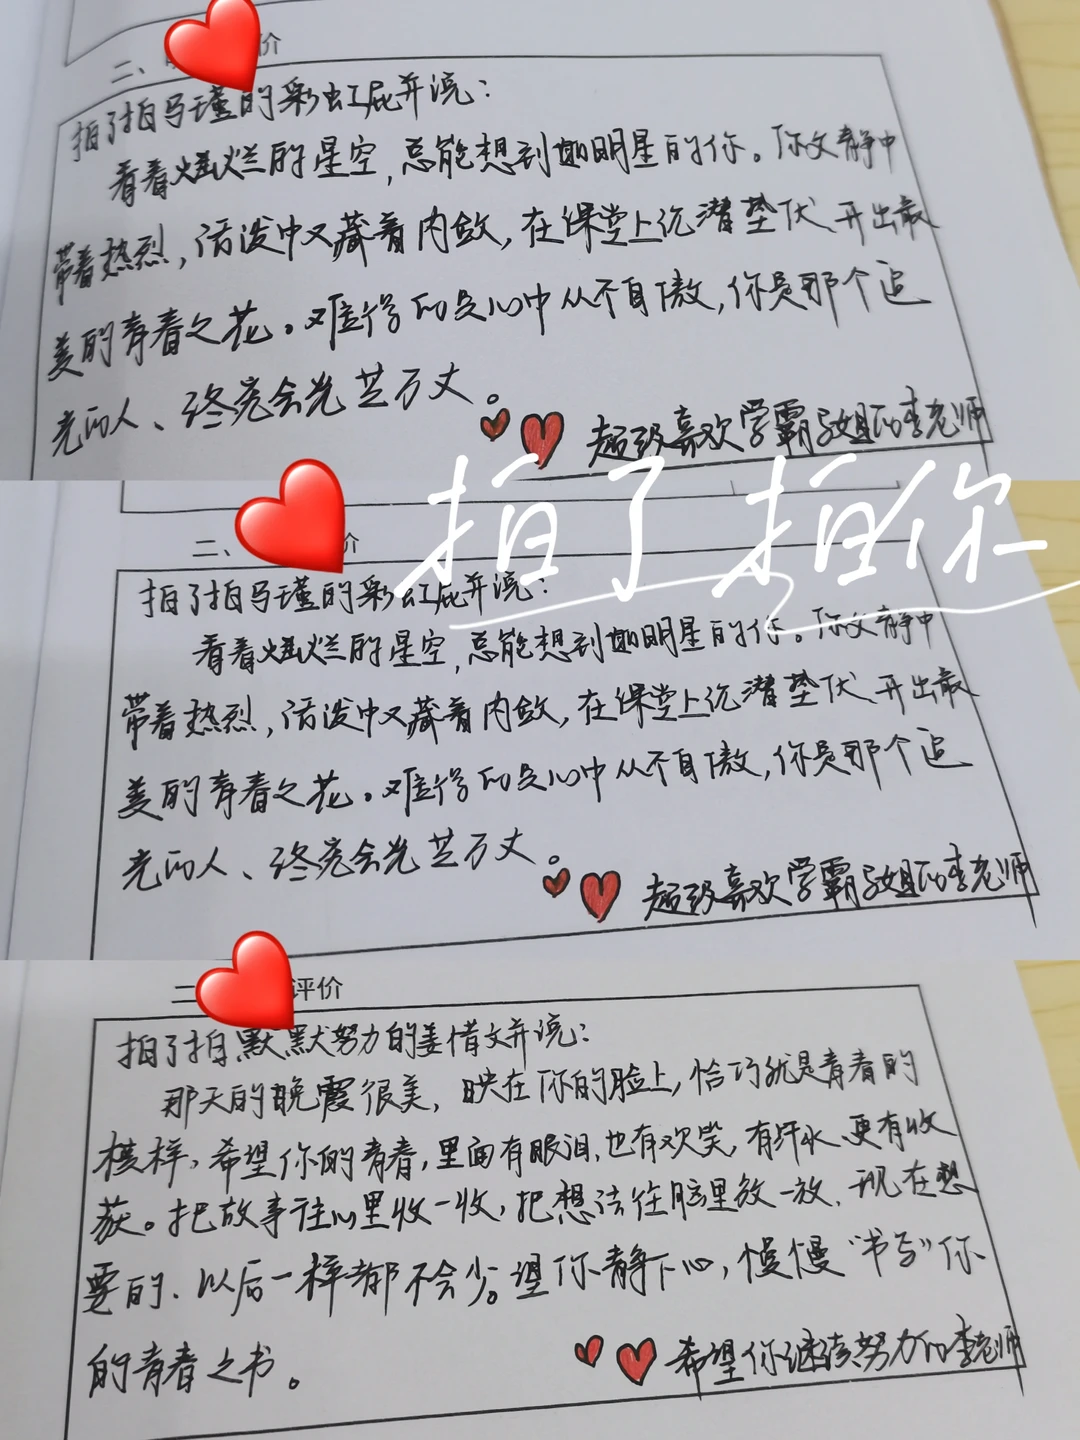 二、 价
拍了拍马瑾的彩虹屁并说：
看着灿烂的星空，总能想到如明星的你。你文静中
带着热烈，活泼中又藏着内敛，在课堂上沉潜蛰伏、开出最
美的青春之花。难得的是心中从不自傲，你是那个追
光的人、终究会光芒万丈。
超级喜欢学霸子姐的李老师
拍了拍你
二、 价
拍了拍马瑾的彩虹屁并说：
看着灿烂的星空，总能想到如明星的你。你文静中
带着热烈，活泼中又藏着内敛，在课堂上沉潜蛰伏、开出最
美的青春之花。难得的是心中从不自傲，你是那个追
光的人、终究会光芒万丈。
超级喜欢学霸子姐的李老师
二 评价
拍了拍默默努力的姜倩文并说：
那天的晚霞很美，映在你的脸上，恰巧就是青春的
模样，希望你的青春，里面有眼泪，也有欢笑，有汗水、更有收
获。把故事往心里收一收，把想法往脑里放一放，现在想
要的、以后一样都不会少。望你静下心，慢慢“书写”你
的青春之书。
希望你继续努力的李老师